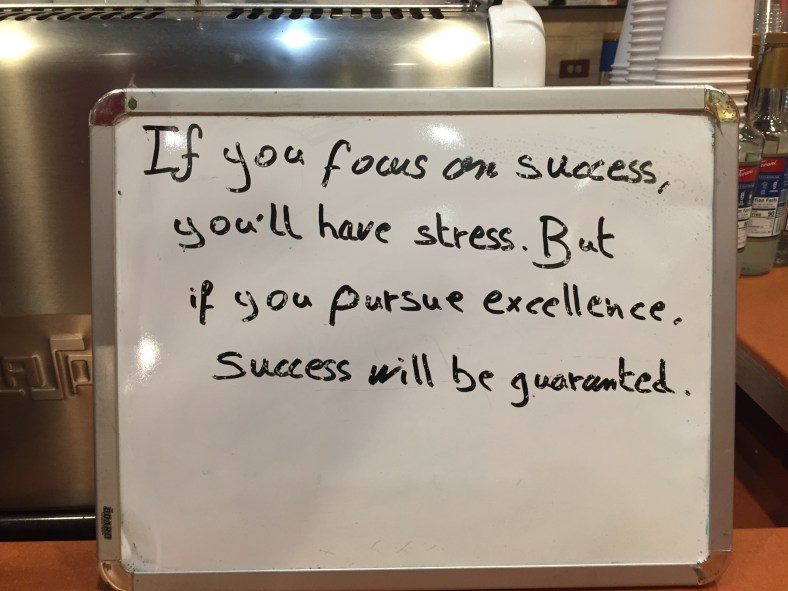 If you focus on success,
you'll have stress. But
if you pursue excellence.
success will be guaranted.